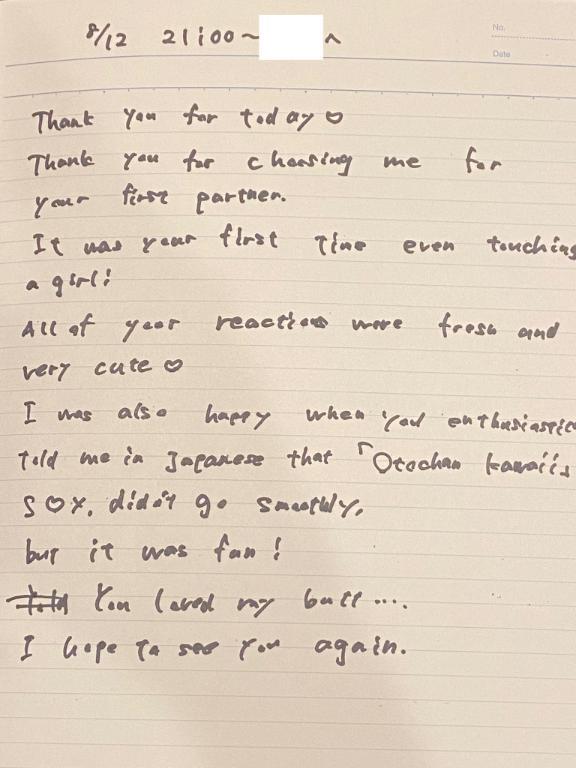 No.
Date
8/12 21:00~ へ
Thank you for today♡
Thank you for choosing me for
your first partner.
It was your first Time even touching
a girl!
All of your reactions were fresh and
very cute♡
I was also happy when you enthusiastic
told me in Japanese that 「Otochan kawaii
S♡X, didn't go smoothly,
but it was fun!
You loved my butt....
I hope to see you again.